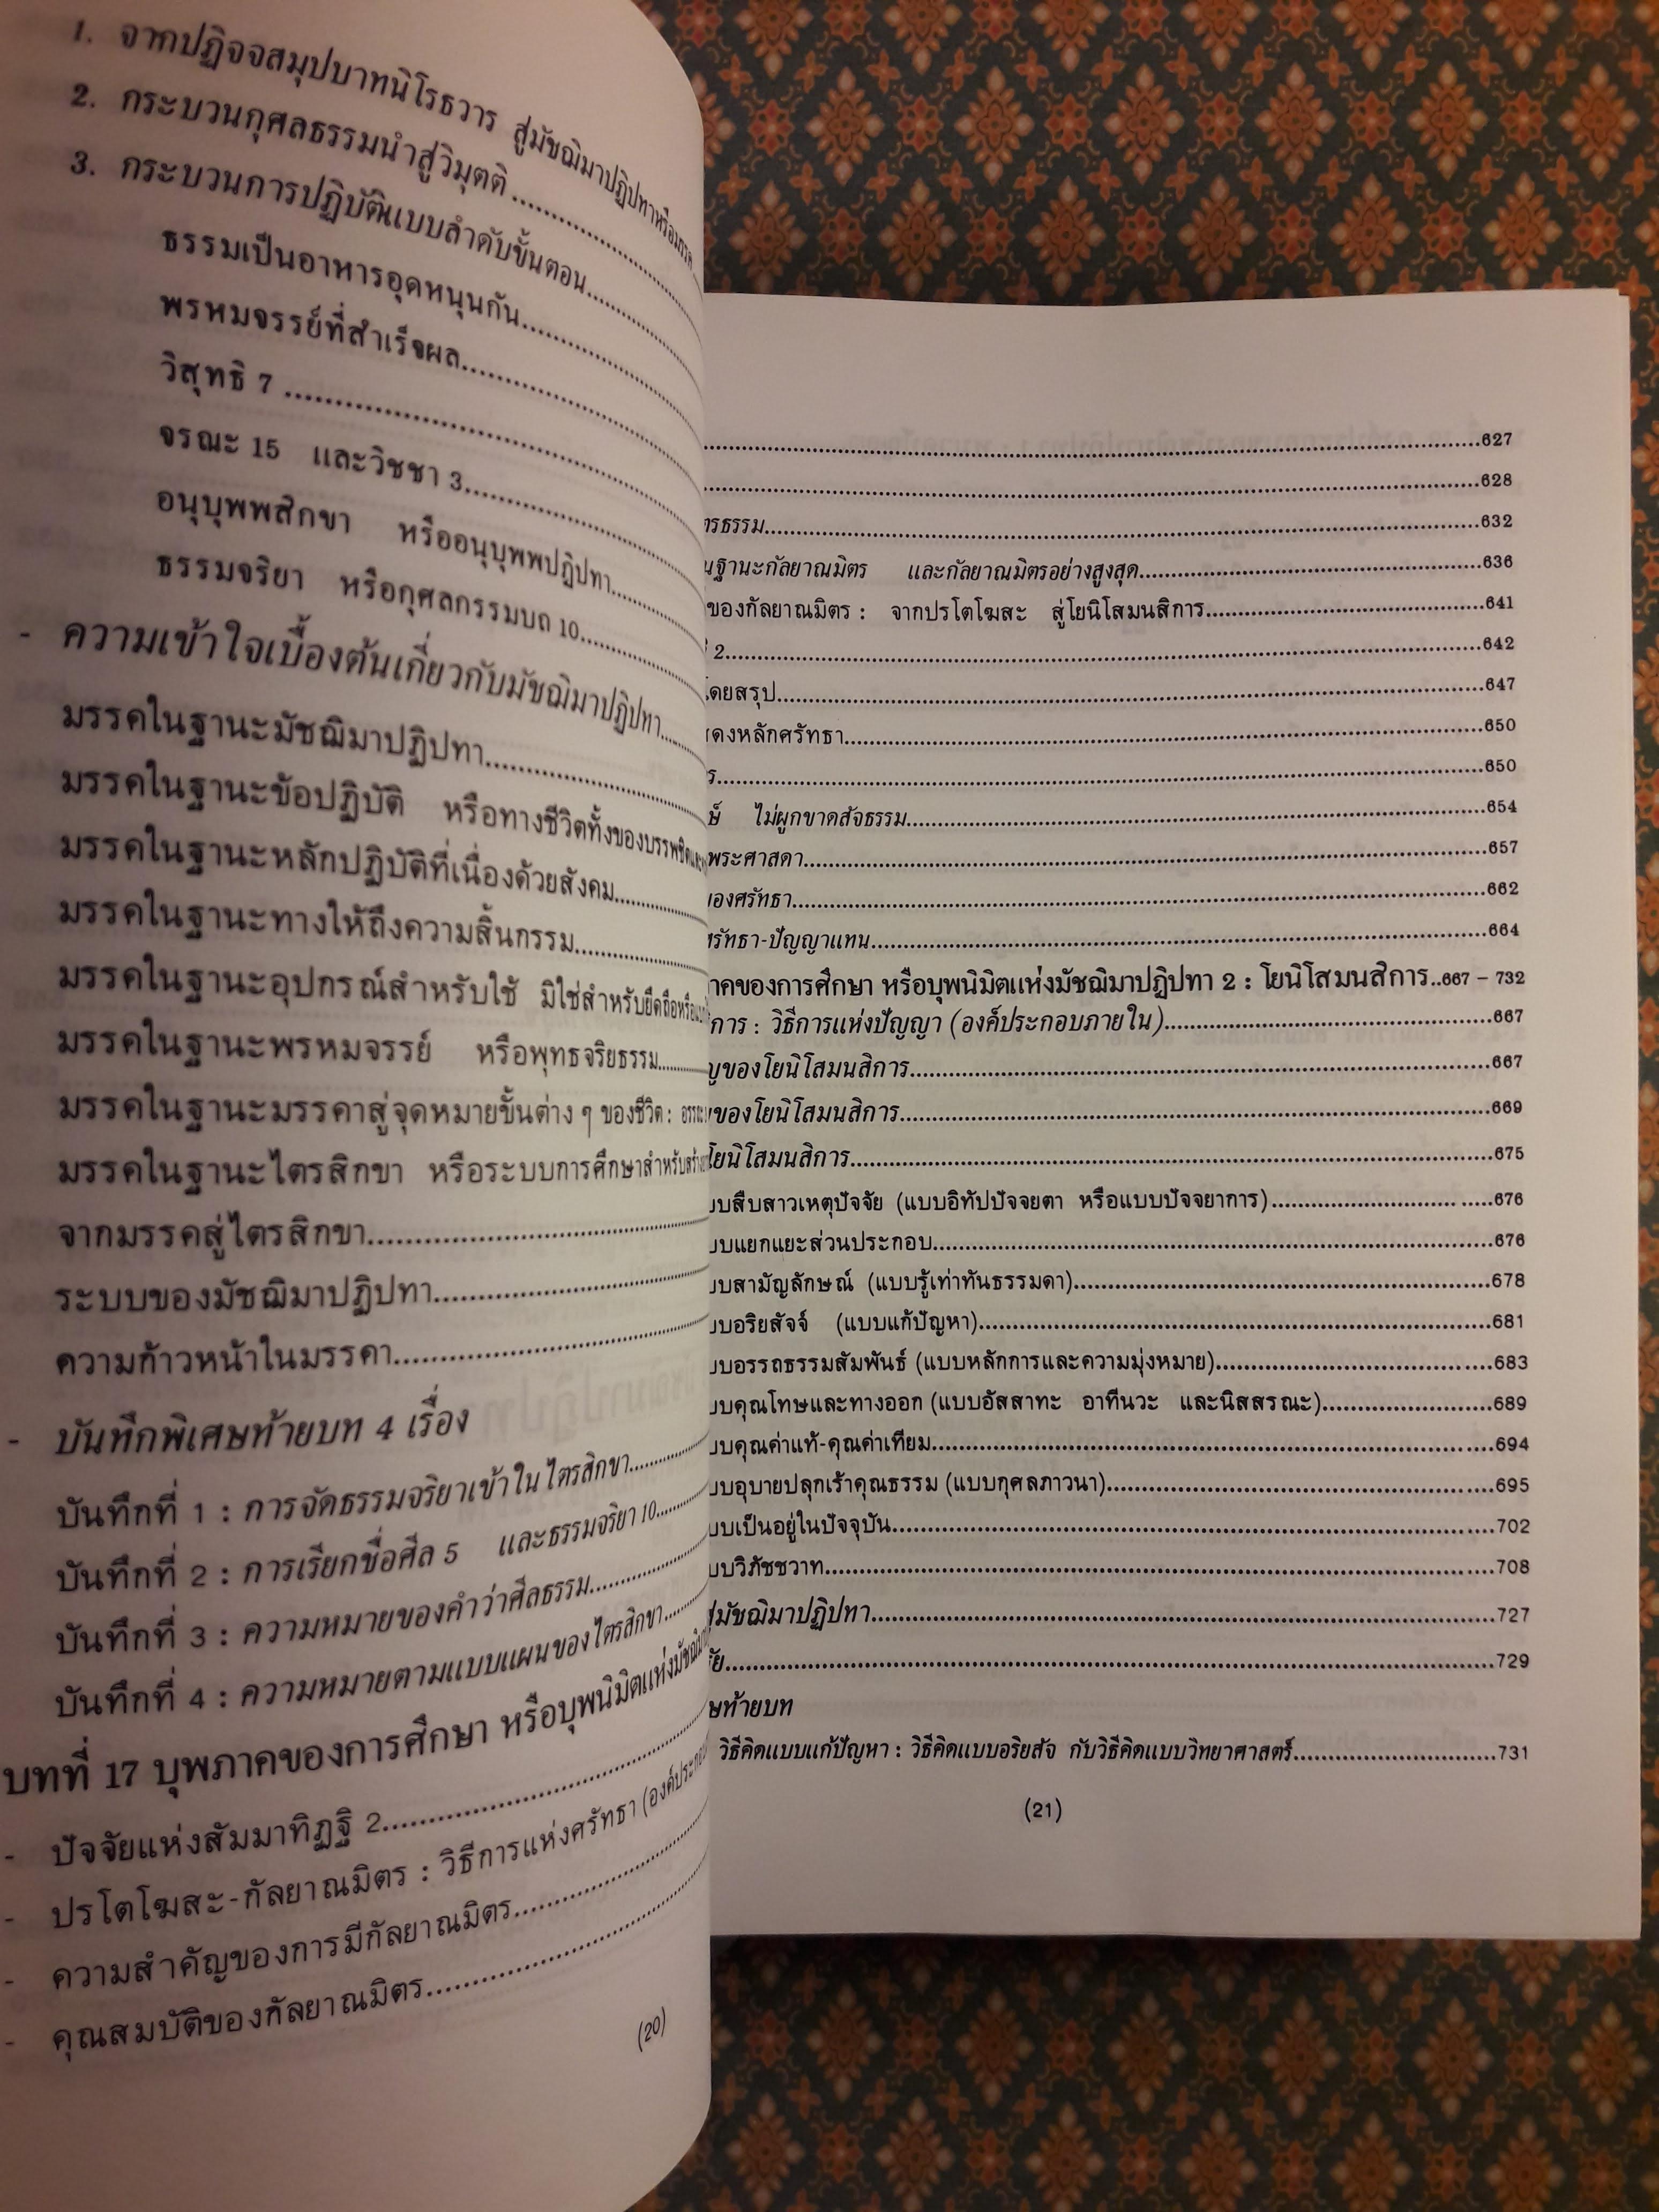 1. จากปฏิจจสมุปบาทนิโรธวาร สู่มัชฌิมาปฏิปทาหรือมรรค
2. กระบวนกุศลธรรมนำสู่วิมุตติ
3. กระบวนการปฏิบัติแบบลำดับขั้นตอน
ธรรมเป็นอาหารอุดหนุนกัน
พรหมจรรย์ที่สำเร็จผล
วิสุทธิ 7
จรณะ 15 และวิชชา 3
อนุบุพพสิกขา หรืออนุบุพพปฏิปทา
ธรรมจริยา หรือกุศลกรรมบถ 10
- ความเข้าใจเบื้องต้นเกี่ยวกับมัชฌิมาปฏิปทา
มรรคในฐานะมัชฌิมาปฏิปทา
มรรคในฐานะข้อปฏิบัติ หรือทางชีวิตทั้งของบรรพชิตและ
มรรคในฐานะหลักปฏิบัติที่เนื่องด้วยสังคม
มรรคในฐานะทางให้ถึงความสิ้นกรรม
มรรคในฐานะอุปกรณ์สำหรับใช้ มิใช่สำหรับยึดถือหรือ
มรรคในฐานะพรหมจรรย์ หรือพุทธจริยธรรม
มรรคในฐานะมรรคาสู่จุดหมายขั้นต่าง ๆ ของชีวิต :
มรรคในฐานะไตรสิกขา หรือระบบการศึกษาสำหรับสร้าง
จากมรรคสู่ไตรสิกขา
ระบบของมัชฌิมาปฏิปทา
ความก้าวหน้าในมรรคา
- บันทึกพิเศษท้ายบท 4 เรื่อง
บันทึกที่ 1 : การจัดธรรมจริยาเข้าในไตรสิกขา
บันทึกที่ 2 : การเรียกชื่อศีล 5 และธรรมจริยา 10
บันทึกที่ 3 : ความหมายของคำว่าศีลธรรม
บันทึกที่ 4 : ความหมายตามแบบแผนของไตรสิกขา
บทที่ 17 บุพภาคของการศึกษา หรือบุพนิมิตแห่ง
- ปัจจัยแห่งสัมมาทิฏฐิ 2
- ปรโตโฆสะ-กัลยาณมิตร : วิธีการแห่งศรัทธา
- ความสำคัญของการมีกัลยาณมิตร
- คุณสมบัติของกัลยาณมิตร
(20)
627
628
ตรธรรม 632
นฐานะกัลยาณมิตร และกัลยาณมิตรอย่างสูงสุด 636
ของกัลยาณมิตร : จากปรโตโฆสะ สู่โยนิโสมนสิการ 641
2 642
โดยสรุป 647
สดงหลักศรัทธา 650
ร 650
ษ์ ไม่ผูกขาดสัจธรรม 654
พระศาสดา 657
ของศรัทธา 662
ศรัทธา-ปัญญาแทน 664
าคของการศึกษา หรือบุพนิมิตแห่งมัชฌิมาปฏิปทา 2 : โยนิโสมนสิการ..667 – 732
การ : วิธีการแห่งปัญญา (องค์ประกอบภายใน) 667
ญของโยนิโสมนสิการ 667
ของโยนิโสมนสิการ 669
โยนิโสมนสิการ 675
บบสืบสาวเหตุปัจจัย (แบบอิทัปปัจจยตา หรือแบบปัจจยาการ) 676
บบแยกแยะส่วนประกอบ 676
บบสามัญลักษณ์ (แบบรู้เท่าทันธรรมดา) 678
บบอริยสัจจ์ (แบบแก้ปัญหา) 681
บบอรรถธรรมสัมพันธ์ (แบบหลักการและความมุ่งหมาย) 683
บบคุณโทษและทางออก (แบบอัสสาทะ อาทีนวะ และนิสสรณะ) 689
บบคุณค่าแท้-คุณค่าเทียม 694
บบอุบายปลุกเร้าคุณธรรม (แบบกุศลภาวนา) 695
บบเป็นอยู่ในปัจจุบัน 702
บบวิภัชชวาท 708
สู่มัชฌิมาปฏิปทา 727
ัย 729
ษท้ายบท
วิธีคิดแบบแก้ปัญหา : วิธีคิดแบบอริยสัจ กับวิธีคิดแบบวิทยาศาสตร์ 731
(21)